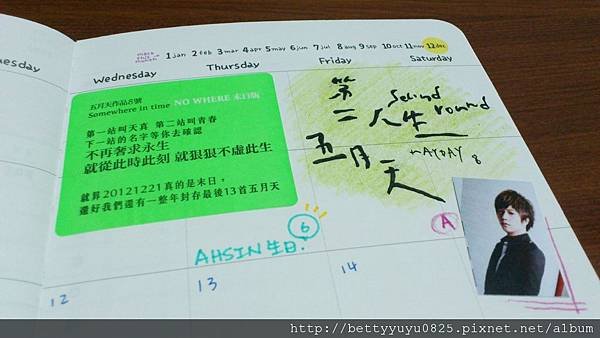 mark this month
1 jan 2 feb 3 mar 4 apr 5 may 6 jun 7 jul 8 aug 9 sep 10 oct 11 nov 12 dec
Tuesday
Wednesday
Thursday
Friday
Saturday
五月天作品8號
Somewhere in time NO WHERE 末日版
第一站叫天真 第二站叫青春
下一站的名字等你去確認
不再奢求永生
就從此時此刻 就狠狠不虛此生
就算20121221真的是末日，
還好我們還有一整年封存最後13首五月天
第二人生
second round
五月天
MAYDAY 8
6
AHSIN生日!
A
12
13
14
http://bettyyuyu0825.pixnet.net/album